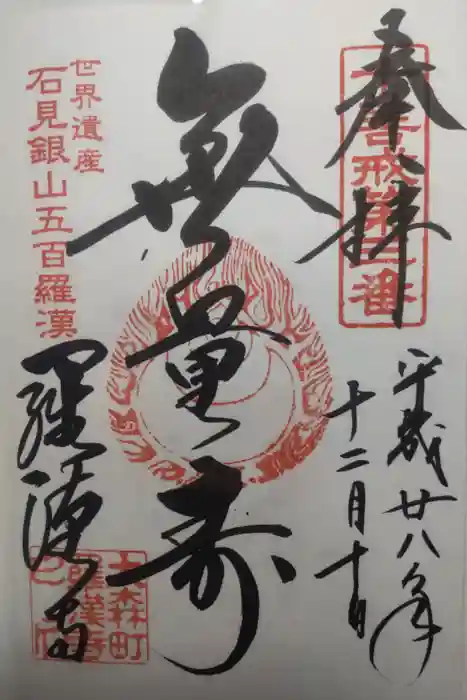 奉拝
十善戒第二番
平成廿八年
十二月十日
無量寿
世界遺産
石見銀山五百羅漢
羅漢寺
大森町
羅漢寺